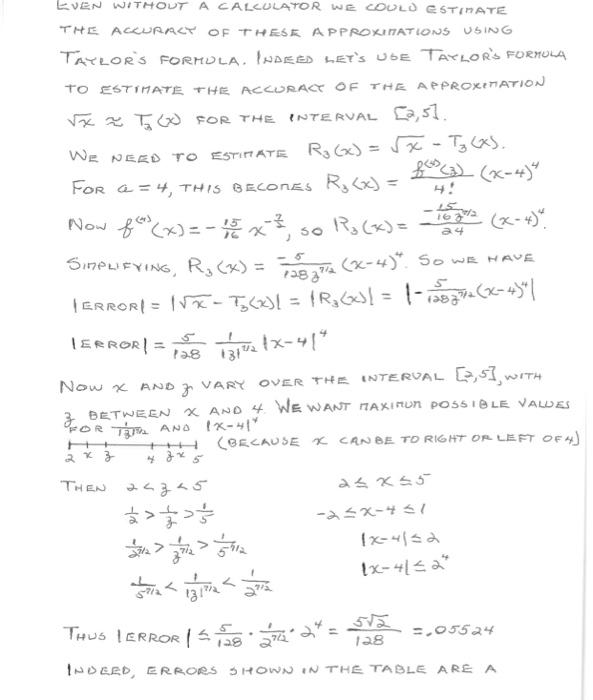 EVEN WITHOUT A CALCULATOR WE COULD ESTIMATE
THE ACCURACY OF THESE APPROXIMATIONS USING
TAYLOR'S FORMULA. INDEED LET'S USE TAYLOR'S FORMULA
TO ESTIMATE THE ACCURACY OF THE APPROXIMATION
√x ≈ T₃(x) FOR THE INTERVAL [2,5].
WE NEED TO ESTIMATE R₃(x) = √x - T₃(x).
FOR a = 4, THIS BECOMES R₃(x) = f⁽⁴⁾(z)/4! (x-4)⁴
NOW f⁽⁴⁾(x) = -15/16 x^(-7/2), SO R₃(x) = (-15/(16z^(7/2)))/24 (x-4)⁴.
SIMPLIFYING, R₃(x) = -5/(128z^(7/2)) (x-4)⁴. SO WE HAVE
|ERROR| = |√x - T₃(x)| = |R₃(x)| = |-5/(128z^(7/2)) (x-4)⁴|
|ERROR| = 5/128 1/|z|^(7/2) |x-4|⁴
NOW x AND z VARY OVER THE INTERVAL [2,5], WITH
z BETWEEN x AND 4. WE WANT MAXIMUM POSSIBLE VALUES
FOR 1/|z|^(7/2) AND |x-4|⁴
(BECAUSE x CAN BE TO RIGHT OR LEFT OF 4)
2 x z 4 z x 5
THEN 2<z<5 2≤x≤5
1/2 > 1/z > 1/5 -2≤x-4≤1
1/2^(7/2) > 1/z^(7/2) > 1/5^(7/2) |x-4|≤2
1/5^(7/2) < 1/|z|^(7/2) < 1/2^(7/2) |x-4|≤2⁴
THUS |ERROR| ≤ 5/128 · 1/2^(7/2) · 2⁴ = 5√2/128 = .05524
INDEED, ERRORS SHOWN IN THE TABLE ARE A